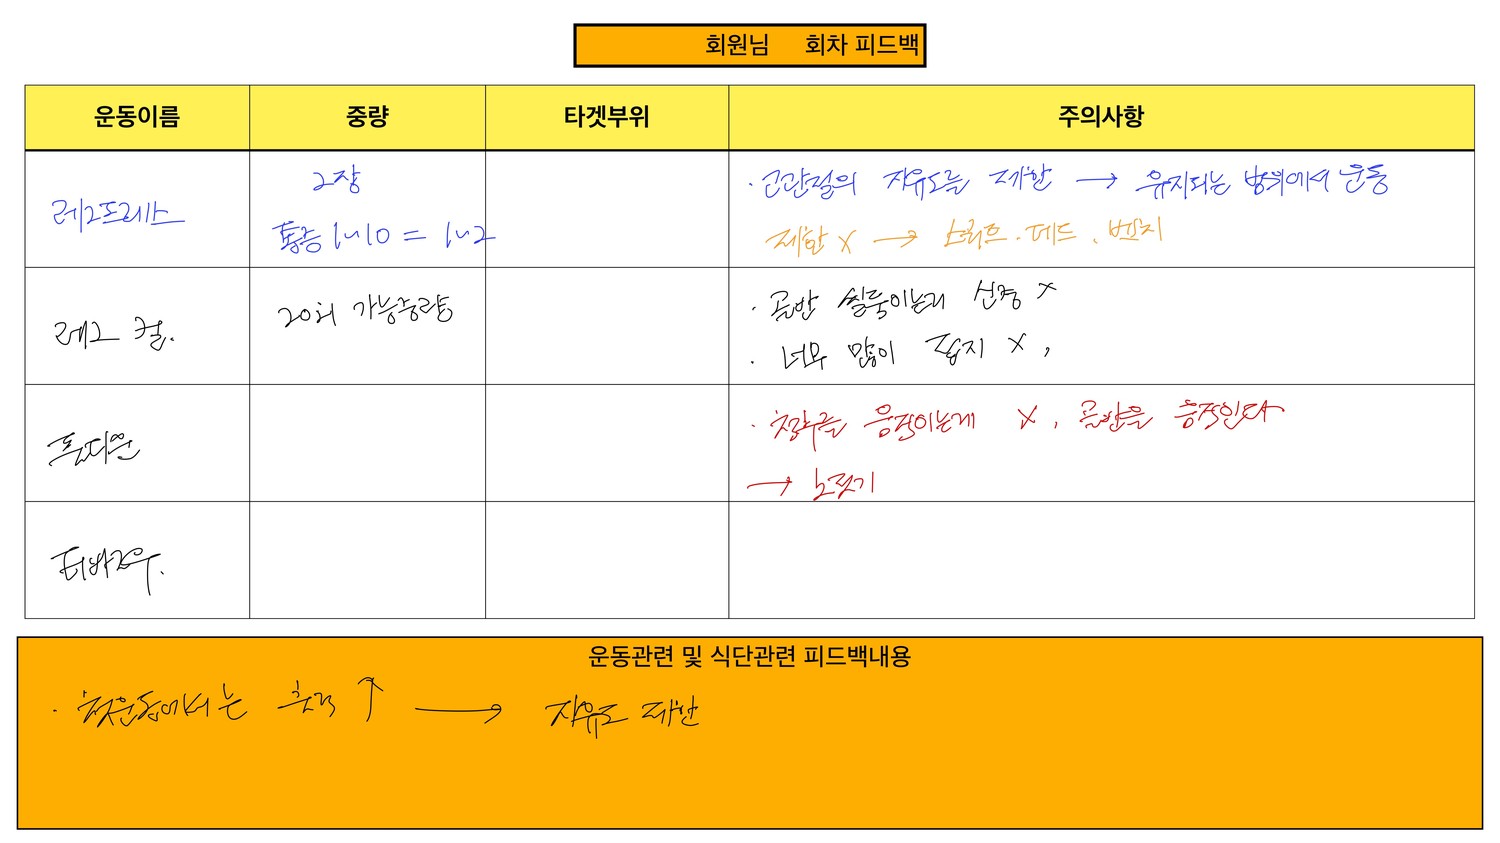 회원님 회차 피드백
운동이름 중량 타겟부위 주의사항
레그프레스
2장
통증 1~10 = 1~2
· 고관절의 자유도를 제한 → 유지되는 범위에서 운동
제한 x → 스쿼트. 데드. 벤치
레그 컬.
20회 가능중량
· 골반 씰룩이는거 신경 x
· 너무 많이 접지 x,
롱다운
· 척추를 움직이는게 x, 골반을 움직인다
→ 노젓기
티바로우.
운동관련 및 식단관련 피드백내용
· 첫운동에서는 출력 ↑ → 자유도 제한